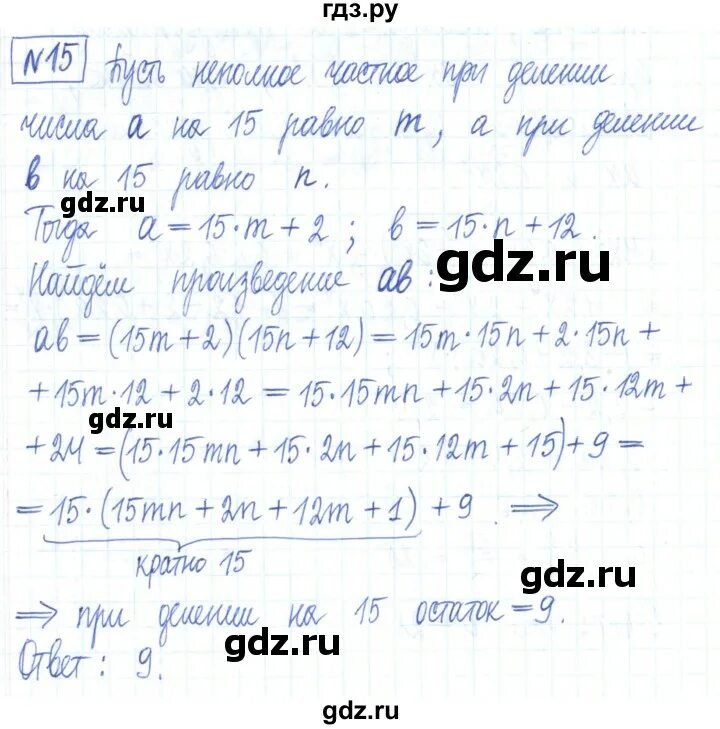 гдз.ру
№15 Пусть неполное частное при делении
числа а на 15 равно m, а при делении
в на 15 равно n.
gdz.ru
Тогда а = 15·m + 2 ; в = 15·n + 12.
gdz.ru
Найдём произведение ав :
ав = (15m + 2)(15n + 12) = 15m·15n + 2·15n +
+ 15m·12 + 2·12 = 15·15mn + 15·2n + 15·12m +
gdz.ru
+ 24 = (15·15mn + 15·2n + 15·12m + 15) + 9 =
= 15·(15mn + 2n + 12m + 1) + 9 ⟹
кратно 15
gdz.ru
⟹ при делении на 15 остаток = 9.
gdz.ru
Ответ : 9.
gdz.ru